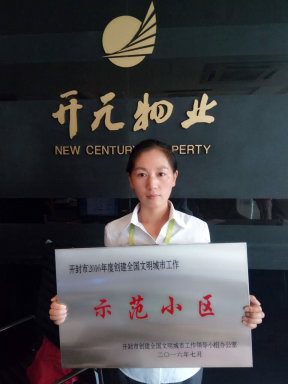 开元物业
NEW CENTURY PROPERTY
开封市2016年度创建全国文明城市工作
示范小区
开封市创建全国文明城市工作领导小组办公室
二〇一六年七月